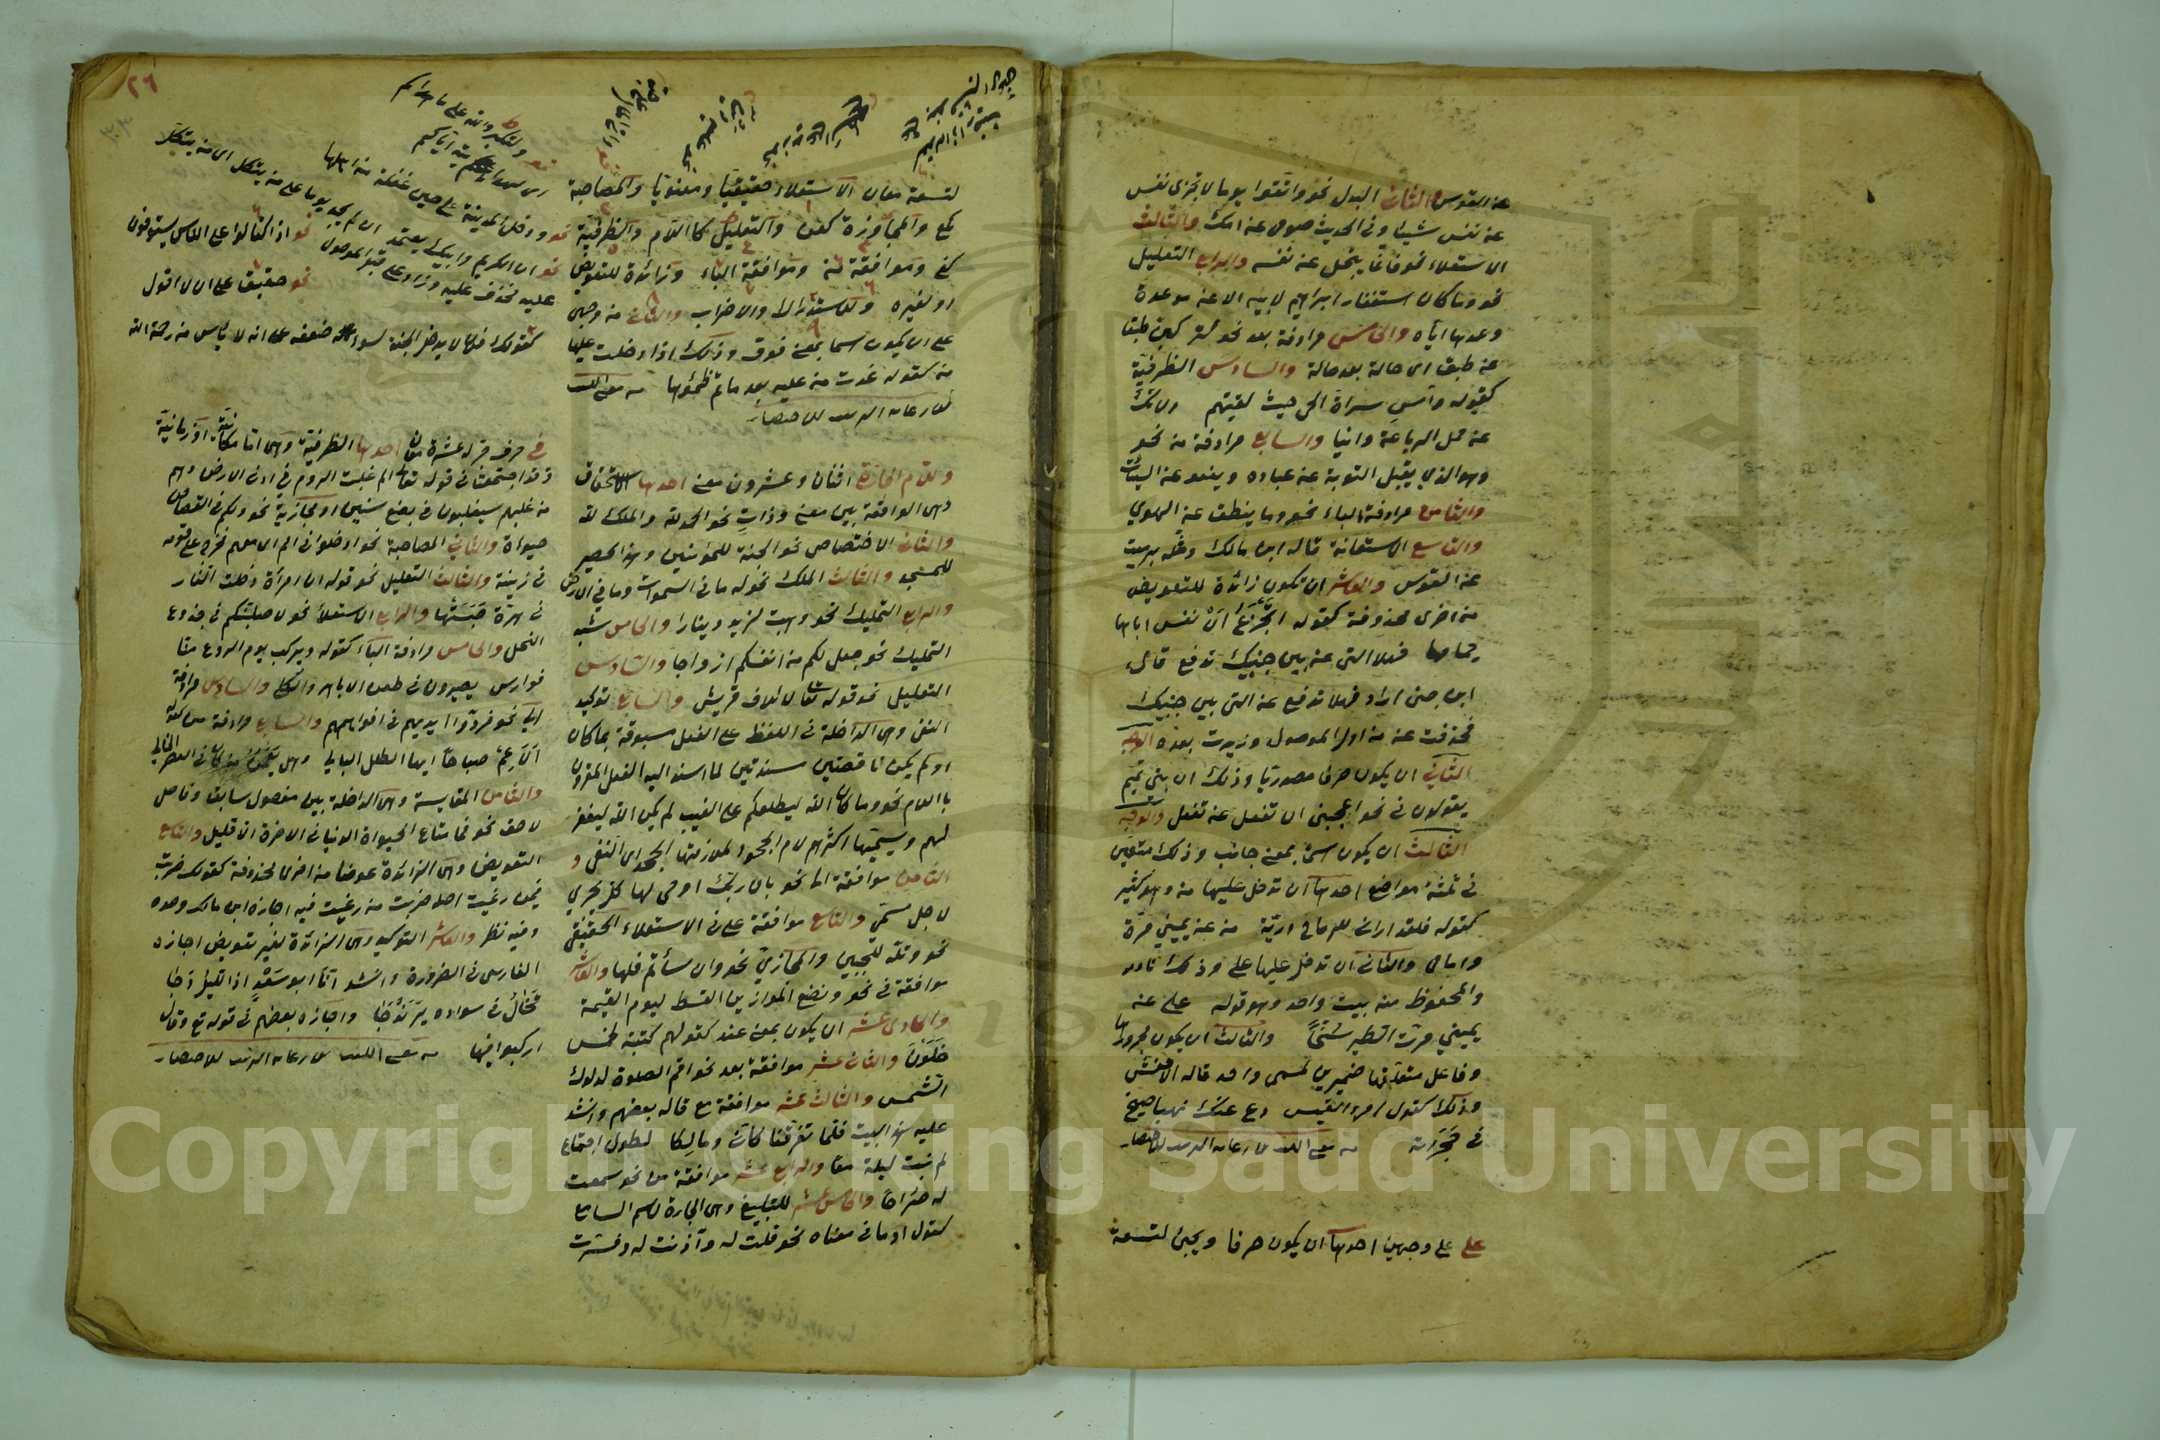 عن القوس والثاني البدل نحو واتقوا يوما لا تجزى نفس
عن نفس شيئا وفى الحديث صومى عن امك والثالث
الاستعلاء نحو فانما يبخل عن نفسه والرابع التعليل
نحو وما كان استغفار ابراهيم لابيه الا عن موعدة
وعدها اياه والخامس مرادفة بعد نحو لتركبن طبقا
عن طبق اى حالة بعد حالة والسادس الظرفية
كقوله وآس سراة الحى حيث لقيتهم ولا تك
عن حمل الرباعة وانيا والسابع مرادفة من نحو
وهو الذى يقبل التوبة عن عباده ويعفو عن السيئات
والثامن مرادفة الباء نحو وما ينطق عن الهوى
والتاسع الاستعانة قاله ابن مالك ومثله برميت
عن القوس والعاشر ان تكون زائدة للتعويض
من اخرى محذوفة كقوله اتجزع ان نفس اتاها
حمامها فهلا التى عن بين جنبيك تدفع قال
ابن جنى اراد فهلا تدفع عن التى بين جنبيك
فحذفت عن من اول الموصول وزيدت بعده الوجه
الثانى ان يكون حرفا مصدريا وذلك ان بنى تميم
يقولون فى نحو اعجبنى ان تفعل عن تفعل والوجه
الثالث ان يكون اسما بمعنى جانب وذلك متعين
فى ثلثة مواضع احدها ان تدخل عليها من وهو كثير
كقوله فلقد ارانى للرماح دريئة من عن يمينى مرة
وامامى والثانى ان تدخل عليها على وذلك نادر
والمحفوظ منه بيت واحد وهو قوله على عن
يمينى مرت الطير سنحا والثالث ان يكون مجرورها
وفاعل متعلقها ضميرين لمسمى واحد قاله الاخفش
وذلك كقول امرء القيس دع عنك نهبا صيح
فى حجراته
على على وجهين احدها ان يكون حرفا ويجئ لتسعة
٢٦
لتسعة معان الاستعلاء حقيقيا ومعنويا والمصاحبة
كمع والمجاوزة كعن والتعليل كاللام والظرفية
كفى وموافقة من وموافقة الباء وزائدة للتعويض
او لغيره وللاستدراك والاضراب والثانى من وجهى
على ان يكون اسما بمعنى فوق وذلك اذا دخلت عليها
من كقوله غدت من عليه بعد ما تم ظمؤها
واللام الجارة اثنان وعشرون معنى احدها الاستحقاق
وهى الواقعة بين معنى وذات نحو الحمد لله والملك لله
والثانى الاختصاص نحو الجنة للمؤمنين وهذا الحصير
للمسجد والثالث الملك نحو له ما فى السموات وما فى الارض
والرابع التمليك نحو وهبت لزيد دينارا والخامس شبه
التمليك نحو جعل لكم من انفسكم ازواجا والسادس
التعليل نحو قوله تعالى لايلاف قريش والسابع توكيد
النفى وهى الداخلة فى اللفظ على الفعل مسبوقة بما كان
او لم يكن ناقصتين مسندتين لما اسند اليه الفعل المقرون
باللام نحو وما كان الله ليطلعكم على الغيب لم يكن الله ليغفر
لهم ويسميها اكثرهم لام الجحود لملازمتها للجحد اى النفى و
الثامن موافقة الى نحو بان ربك اوحى لها كل يجرى
لاجل مسمى والتاسع موافقة على فى الاستعلاء الحقيقى
نحو وتله للجبين والمجازى نحو وان اسأتم فلها والعاشر
موافقة فى نحو ونضع الموازين القسط ليوم القيمة
والحادى عشر ان يكون بمعنى عند كقولهم كتبته لخمس
خلون والثانى عشر موافقة بعد نحو اقم الصلوة لدلوك
الشمس والثالث عشر موافقة مع قاله بعضهم وانشد
عليه هذا البيت فلما تفرقنا كانى ومالكا لطول اجتماع
لم نبت ليلة معا والرابع عشر موافقة من نحو سمعت
له صراخا والخامس عشر للتبليغ وهى الجارة لاسم السامع
لقول او ما فى معناه نحو قلت له وآذنت له وفسرت
نحو ولتكبروا الله على ما هداكم
نحو ودخل المدينة على حين غفلة من اهلها
نحو ان الكريم وابيك يعتمل ان لم يجد يوما على من يتكل اى من يتكل
عليه فحذف عليه وزاد على قبل الموصول نحو اذا اكتالوا على الناس يستوفون
نحو حقيق على ان لا اقول
كقولك فلان لا يدخل الجنة لسوء صنعه على انه لا ييأس من رحمة الله
فى حرف جر له عشرة معان احدها الظرفية وهى اما مكانية او زمانية
وقد اجتمعتا فى قوله تعالى الم غلبت الروم فى ادنى الارض وهم
من بعد غلبهم سيغلبون فى بضع سنين او مجازية نحو ولكم فى القصاص
حيواة والثانى المصاحبة نحو ادخلوا فى امم اى معهم فخرج على قومه
فى زينته والثالث التعليل نحو قوله ان امرأة دخلت النار
فى هرة حبستها والرابع الاستعلاء نحو لاصلبنكم فى جذوع
النخل والخامس مرادفة الباء كقوله ويركب يوم الروع منا
فوارس بصيرون فى طعن الاباهر والكلى والسادس مرادفة
الى نحو فردوا ايديهم فى افواههم والسابع مرادفة من كقوله
الا عم صباحا ايها الطلل البالى وهل يعمن من كان فى العصر الخالى
والثامن المقايسة وهى الداخلة بين مفضول سابق وفاضل
لاحق نحو فما متاع الحيواة الدنيا فى الاخرة الا قليل والتاسع
التعويض وهى الزائدة عوضا من اخرى محذوفة كقولك ضربت
فيمن رغبت اصله ضربت من رغبت فيه اجازه ابن مالك وحده
وفيه نظر والعاشر التوكيد وهى الزائدة لغير تعويض اجازه
الفارسى فى الضرورة وانشد انا ابو سعد اذا الليل دجا
تخال فى سواده يرندجا واجازه بعضهم فى قوله تع وقال
اركبوا فيها
Copyright © King Saud University